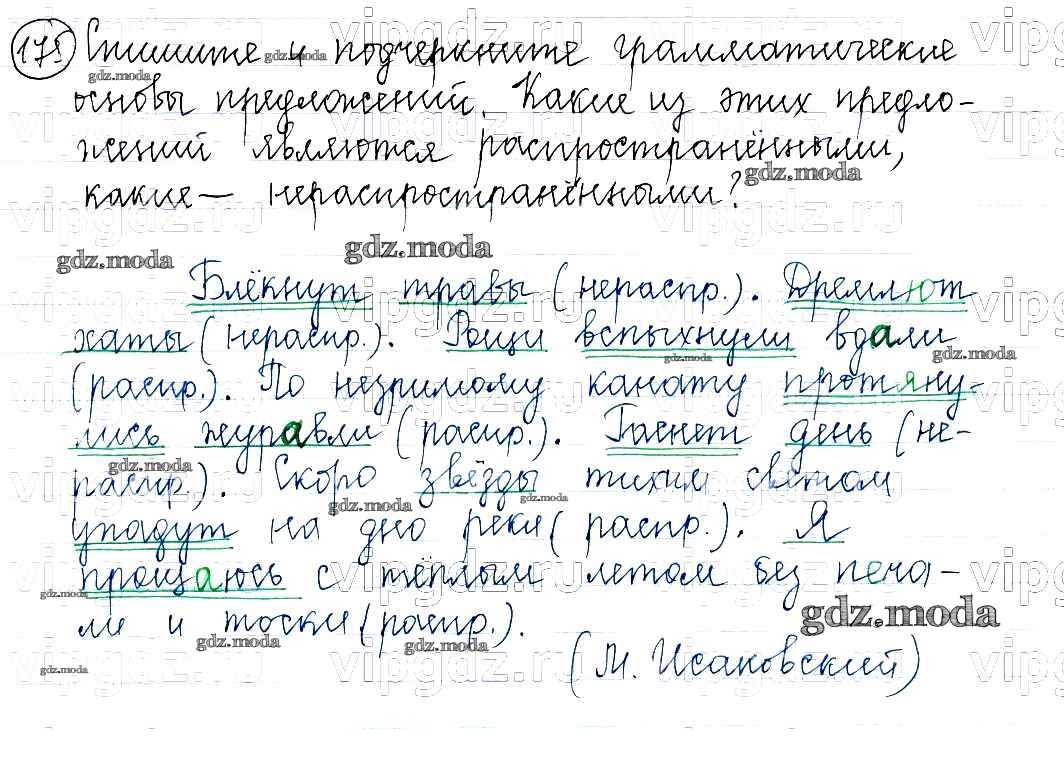 175 Спишите и подчеркните грамматические
основы предложений. Какие из этих предло-
жений являются распространёнными,
какие — нераспространёнными?
gdz.moda
Блёкнут травы (нераспр.). Дремлют
хаты (нераспр.). Рощи вспыхнули вдали
(распр.). По незримому канату протяну-
лись журавли (распр.). Гаснет день (не-
распр.). Скоро звёзды тихим светом
упадут на дно реки (распр.). Я
прощаюсь с тёплым летом без печа-
ли и тоски (распр.).
gdz.moda
(М. Исаковский)
vipgdz.ru